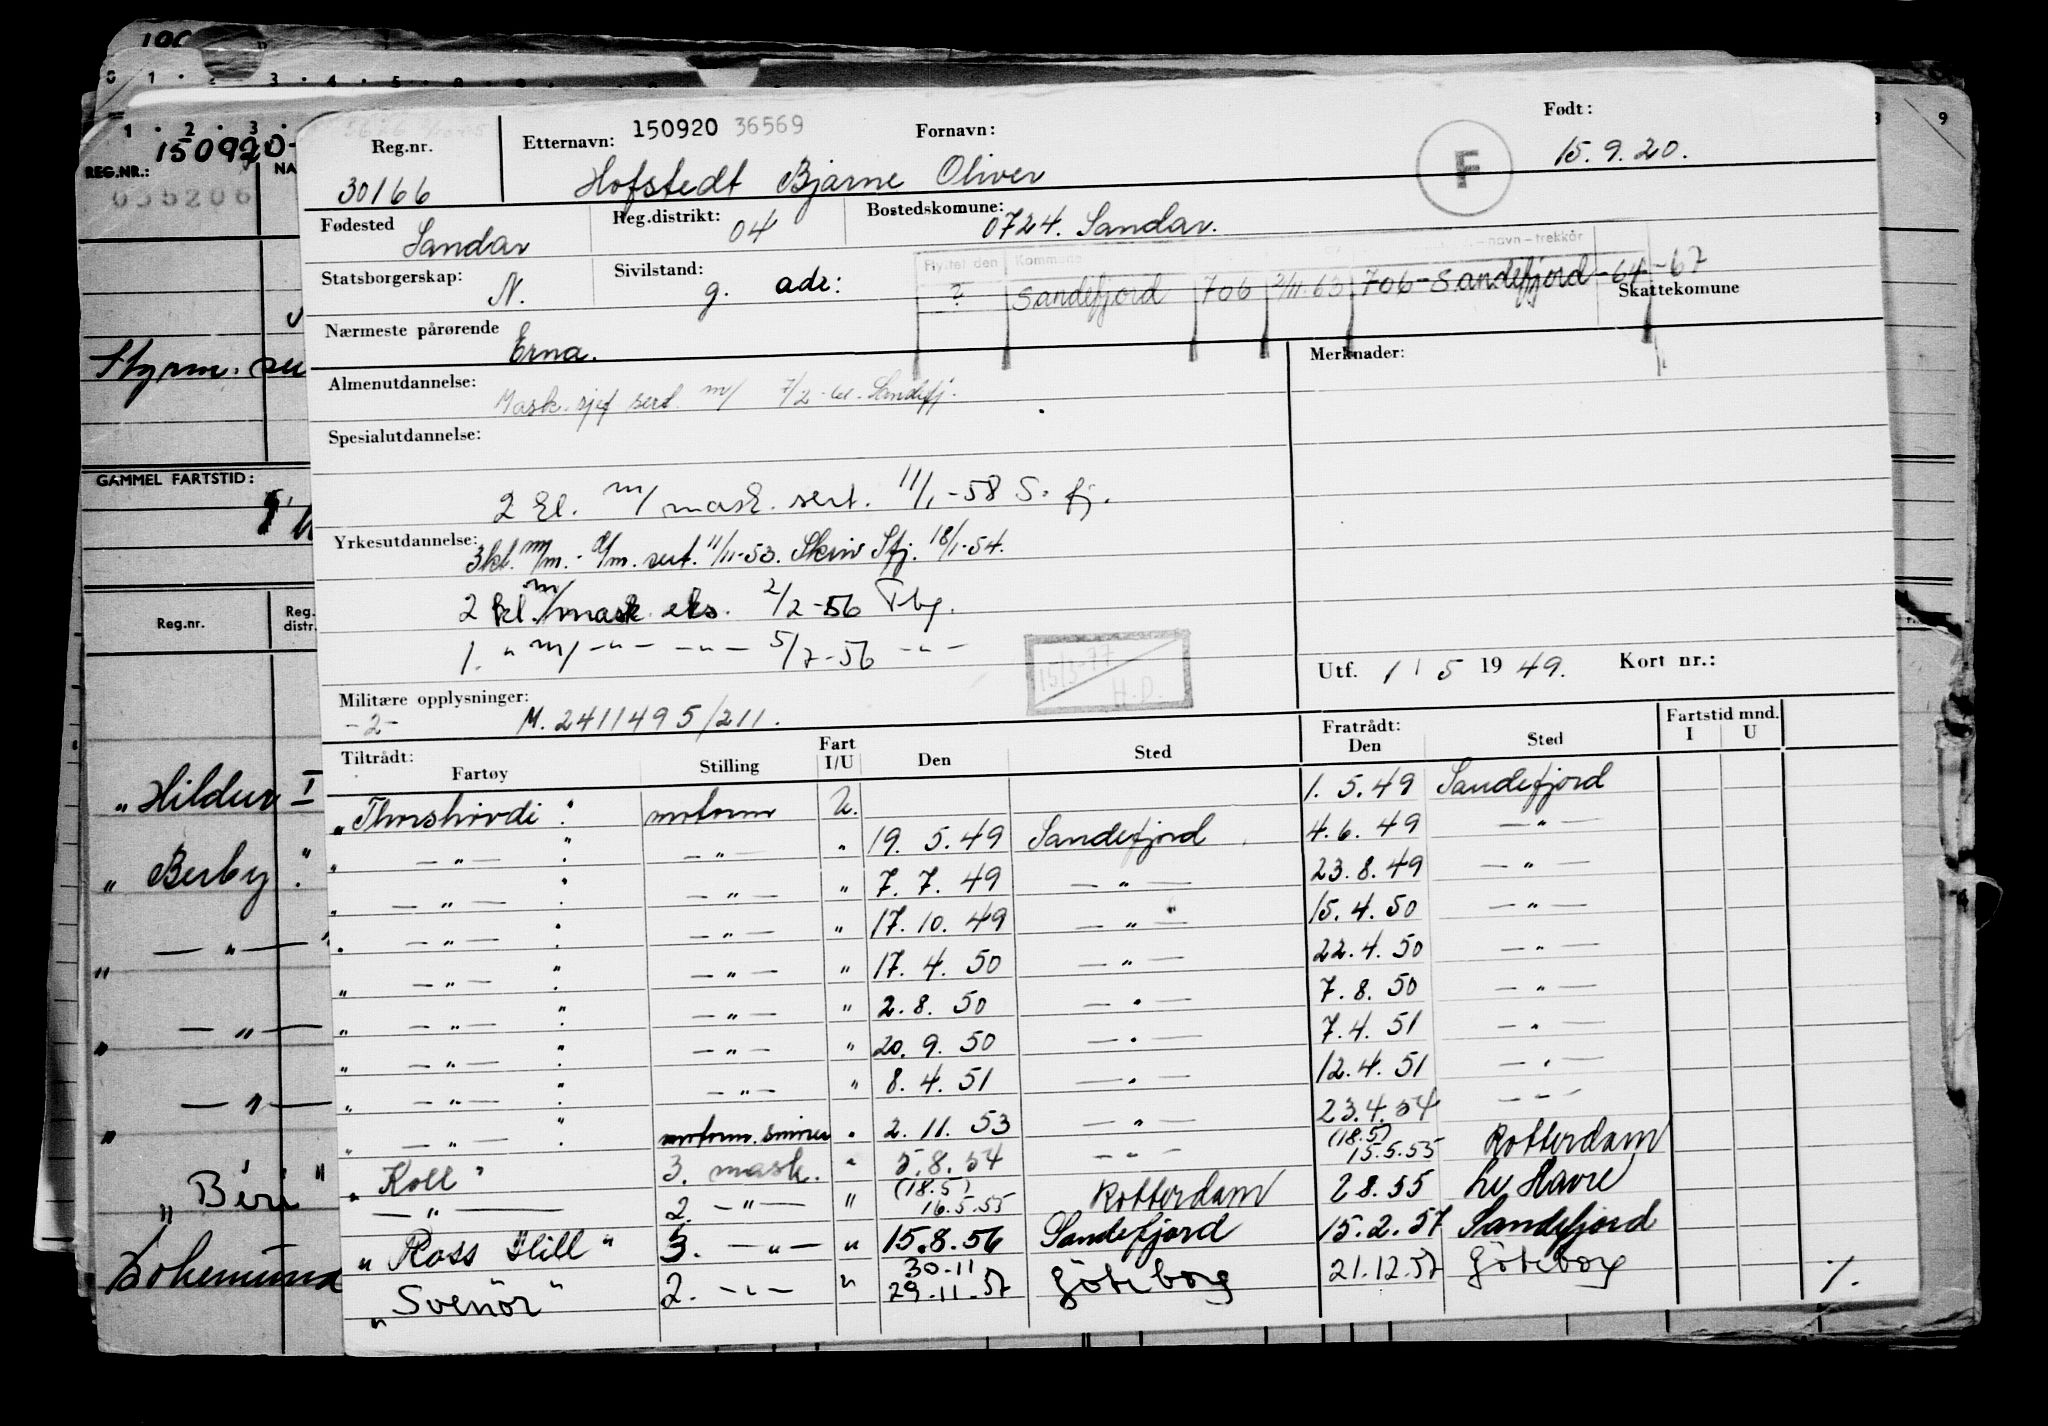 150920
REG.NR.:
NA
035206
Styrm.
GAMMEL FARTSTID:
Reg.nr.
Reg. distr.
„Hildur I
„ Berby "
„ — „ — "
„ — „ —
„ — „ —
„ Béri "
Bohemund
Reg.nr.
30166
Etternavn: 150920 36569 Fornavn:
Hofstedt Bjarne Oliver
F
Født:
15.9.20.
Fødested
Sandar
Reg.distrikt:
04
Bostedskomune:
0724. Sandar.
Statsborgerskap:
N.
Sivilstand:
g. adr:
Flyttet den Kommune -navn-trekkår
? Sandefjord 706 2/11.63 706-Sandefjord-64-67
Skattekomune
Nærmeste pårørende
Erna.
Merknader:
Almenutdannelse:
Mask.sjef sert. m/ 7/2-61. Sandefj.
Spesialutdannelse:
2 kl. m/ mask. sert. 11/1-58 S.fj.
Yrkesutdannelse:
3kl. m/m.- d/m. sert. 11/11-53. Skriv Sfj. 18/1-54.
2 kl. m/mask. eks. 2/2-56 Tbg.
1. " m/ -"- -"- 5/7-56 -"-
15/3-77
H.D.
Utf. 1 / 5 1949. Kort nr.:
Militære opplysninger:
-2- M. 2411495/211.
Tiltrådt:
Fartøy Stilling Fart I/U Den Sted Fratrådt: Den Sted Fartstid mnd. I U
„Thorshövdi" motorm U. 1. 5.49 Sandefjord
„ — „ — " — „ — „ 19. 5.49 Sandefjord 4.6.49 — „ —
„ — „ — " — „ — „ 7. 7. 49 — „ — 23.8.49 — „ —
„ — „ — " — „ — „ 17. 10. 49 — „ — 15.4.50 — „ —
„ — „ — " — „ — „ 17. 4. 50 — „ — 22.4.50 — „ —
„ — „ — " — „ — „ 2.8. 50 — „ — 7.8.50 — „ —
„ — „ — " — „ — „ 20. 9. 50 — „ — 7.4. 51 — „ —
„ — „ — " — „ — „ 8. 4. 51 — „ — 12.4.51 — „ —
„ — „ — " motorm. smører „ 2. 11. 53 — „ — 23.4.54 — „ —
„ Koll " 3. mask. „ 5.8.54 — „ — (18.5) 15.5.55 Rotterdam
— „ — 2. — „ — „ (18.5) 16.5.55 Rotterdam 28.55 Le Havre
„ Ross Hill " 3. — „ — „ 15.8.56 Sandefjord 15.2.57 Sandefjord
„ Svenör " 2. — „ — „ 30.11 29.11.57 Göteborg 21.12.57 Göteborg
%.